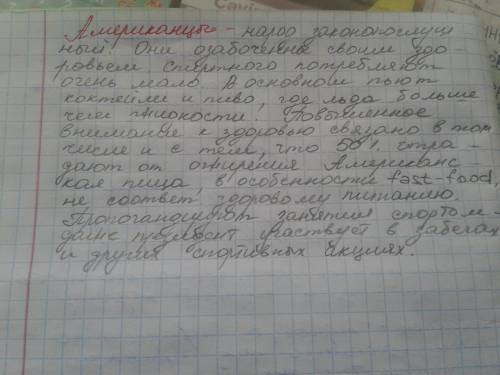 Американцы - народ законопослуш
ный. Они озабоченные своим здо-
ровьем, спиртного потребляют
очень мало. В основном пьют
коктейли и пиво, где льда больше
чем жидкости. Повышенное
внимание к здоровью связано в том
числе и с тем, что 50% стра-
дают от ожирения. Американс
кая пища, в особенности fast-food,
не соответ здоровому питанию.
Пропогандируют занятия спортом
даже президент участвует в забегах
и других спортивных акциях.